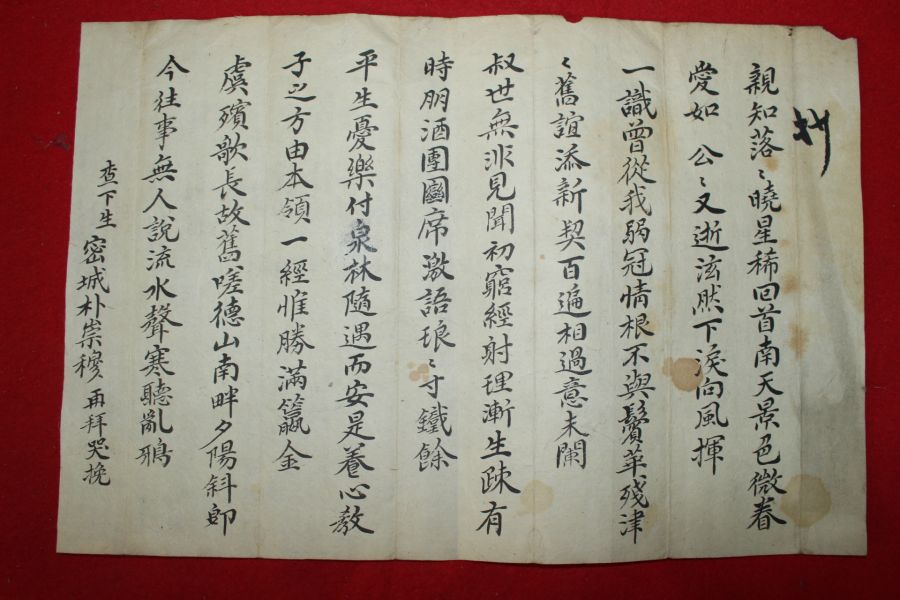 親知落〻曉星稀回首南天景色微眷
愛如 公〻又逝泫然下淚向風揮
一識曾從我弱冠情根不與鬢華殘津
〻舊誼添新契百遍相過意未闌
叔世無非見聞初窮經射理漸生疎有
時朋酒團圝席激語琅〻寸鐵餘
平生憂樂付泉林隨遇而安是養心敎
子之方由本領一經惟勝滿籯金
虞殯歌長故舊嗟德山南畔夕陽斜卽
今往事無人說流水聲寒聽亂鴉
査下生 密城朴崇穆 再拜哭挽